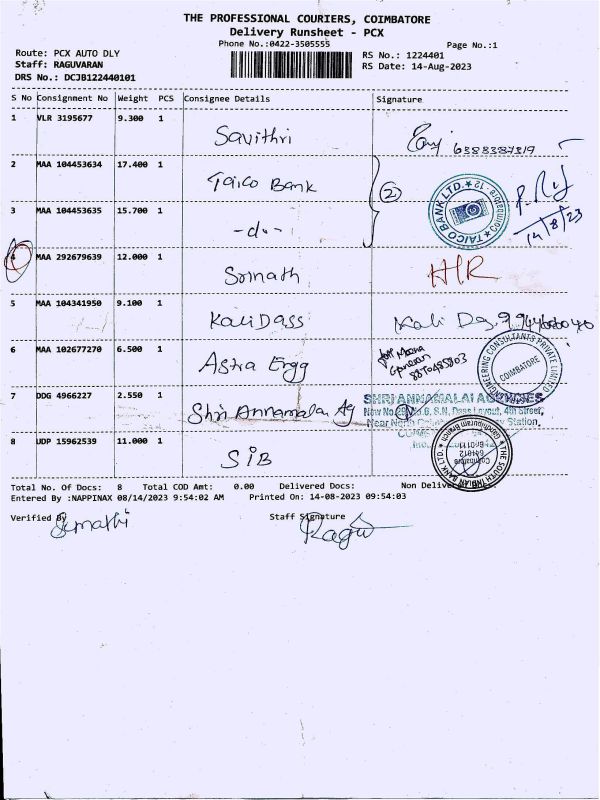 THE PROFESSIONAL COURIERS, COIMBATORE
Delivery Runsheet - PCX
Phone No.:0422-3505555
Page No.:1
Route: PCX AUTO DLY
RS No.: 1224401
Staff: RAGUVARAN
RS Date: 14-Aug-2023
DRS No.: DCJB122440101
S No Consignment No Weight PCS Consignee Details Signature
1 VLR 3195677 9.300 1 Savithri 6388387319
2 MAA 104453634 17.400 1 Taico Bank ②
TAICO BANK LTD. ★ Coimbatore - 12 ★
14/8/23
3 MAA 104453635 15.700 1 -do-
4 MAA 292679639 12.000 1 Srinath HR
5 MAA 104341950 9.100 1 Kali Dass
6 MAA 102677270 6.500 1 Astra Engg
ENGINEERING CONSULTANTS PRIVATE LIMITED
COIMBATORE
7 DDG 4966227 2.550 1 Shri Annamalai Ag
SHRI ANNAMALAI AGENCIES
New No.
S.N. Dass Layout, 4th Street,
Near North
Station,
8 UDP 15962539 11.000 1 SIB
THE SOUTH INDIAN BANK LTD.
Total No. Of Docs: 8 Total COD Amt: 0.00 Delivered Docs: Non Delivered Docs:
Entered By :NAPPINAX 08/14/2023 9:54:02 AM Printed On: 14-08-2023 09:54:03
Verified By
Staff Signature
Ragu